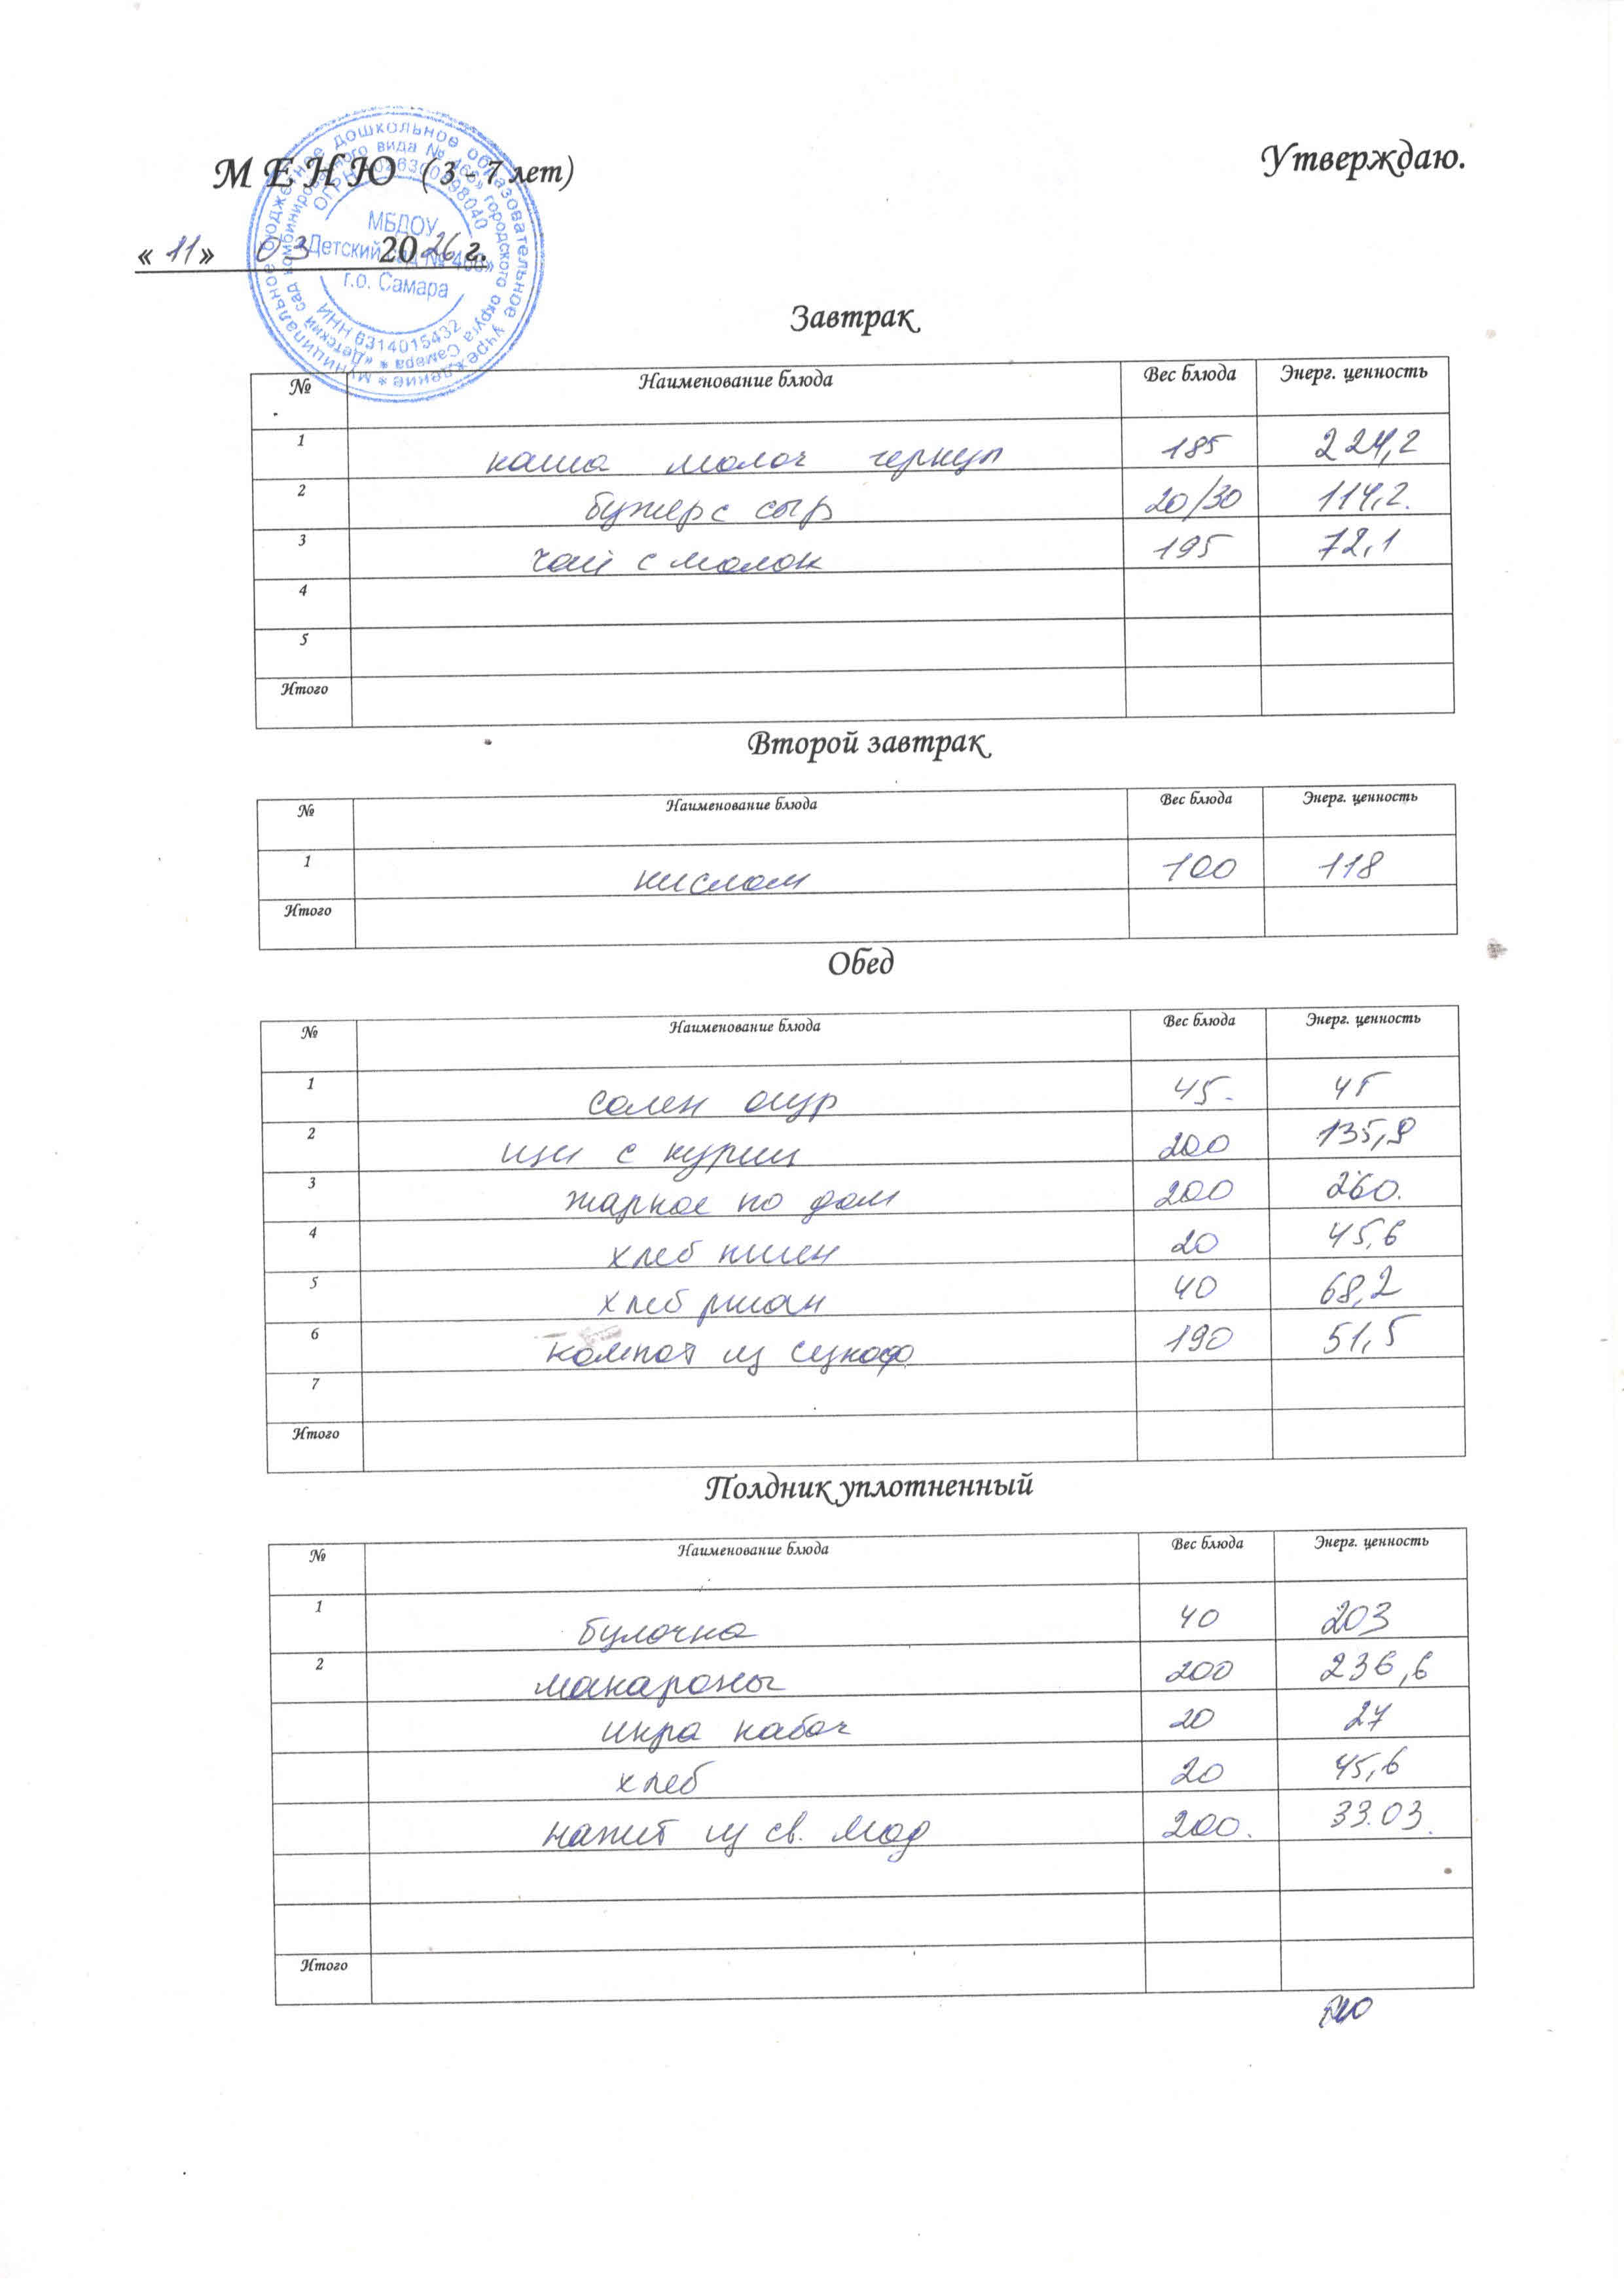 М Е Н Ю (3 - 7 лет)
Утверждаю.
« 11 » 03 2026 г.
МБДОУ
«Детский сад № 466»
г.о. Самара
ИНН 6314015432
Завтрак
№ Наименование блюда Вес блюда Энерг. ценность
1 каша молоч геркул 185 224,2
2 бутер с сыр 20/30 114,2.
3 чай с молок 195 72,1
4
5
Итого
Второй завтрак
№ Наименование блюда Вес блюда Энерг. ценность
1 кислом 100 118
Итого
Обед
№ Наименование блюда Вес блюда Энерг. ценность
1 солен огур 45. 45
2 щи с куриц 200 135,9
3 жаркое по дом 200 260.
4 хлеб пшен 20 45,6
5 хлеб ржан 40 68,2
6 компот из сухоф 190 51,5
7
Итого
Полдник уплотненный
№ Наименование блюда Вес блюда Энерг. ценность
1 булочка 40 203
2 макароны 200 236,6
икра кабач 20 27
хлеб 20 45,6
напит из св. 200. 33.03.
Итого